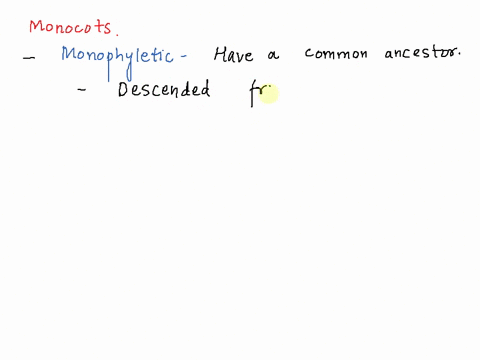 Monocots.
- Monophyletic - Have a common ancestor.
- Descended fr